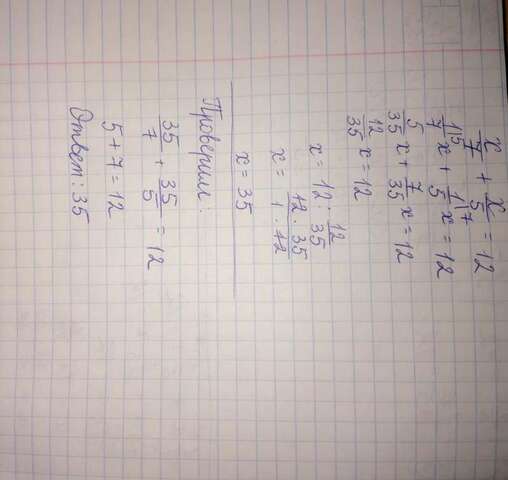 x/7 + x/5 = 12
1/7 ⌊5 x + 1/5 ⌊7 x = 12
5/35 x + 7/35 x = 12
12/35 x = 12
x = 12 : 12/35
x = 12 · 35 / 1 · 12
x = 35
Проверим:
35/7 + 35/5 = 12
5 + 7 = 12
Ответ: 35